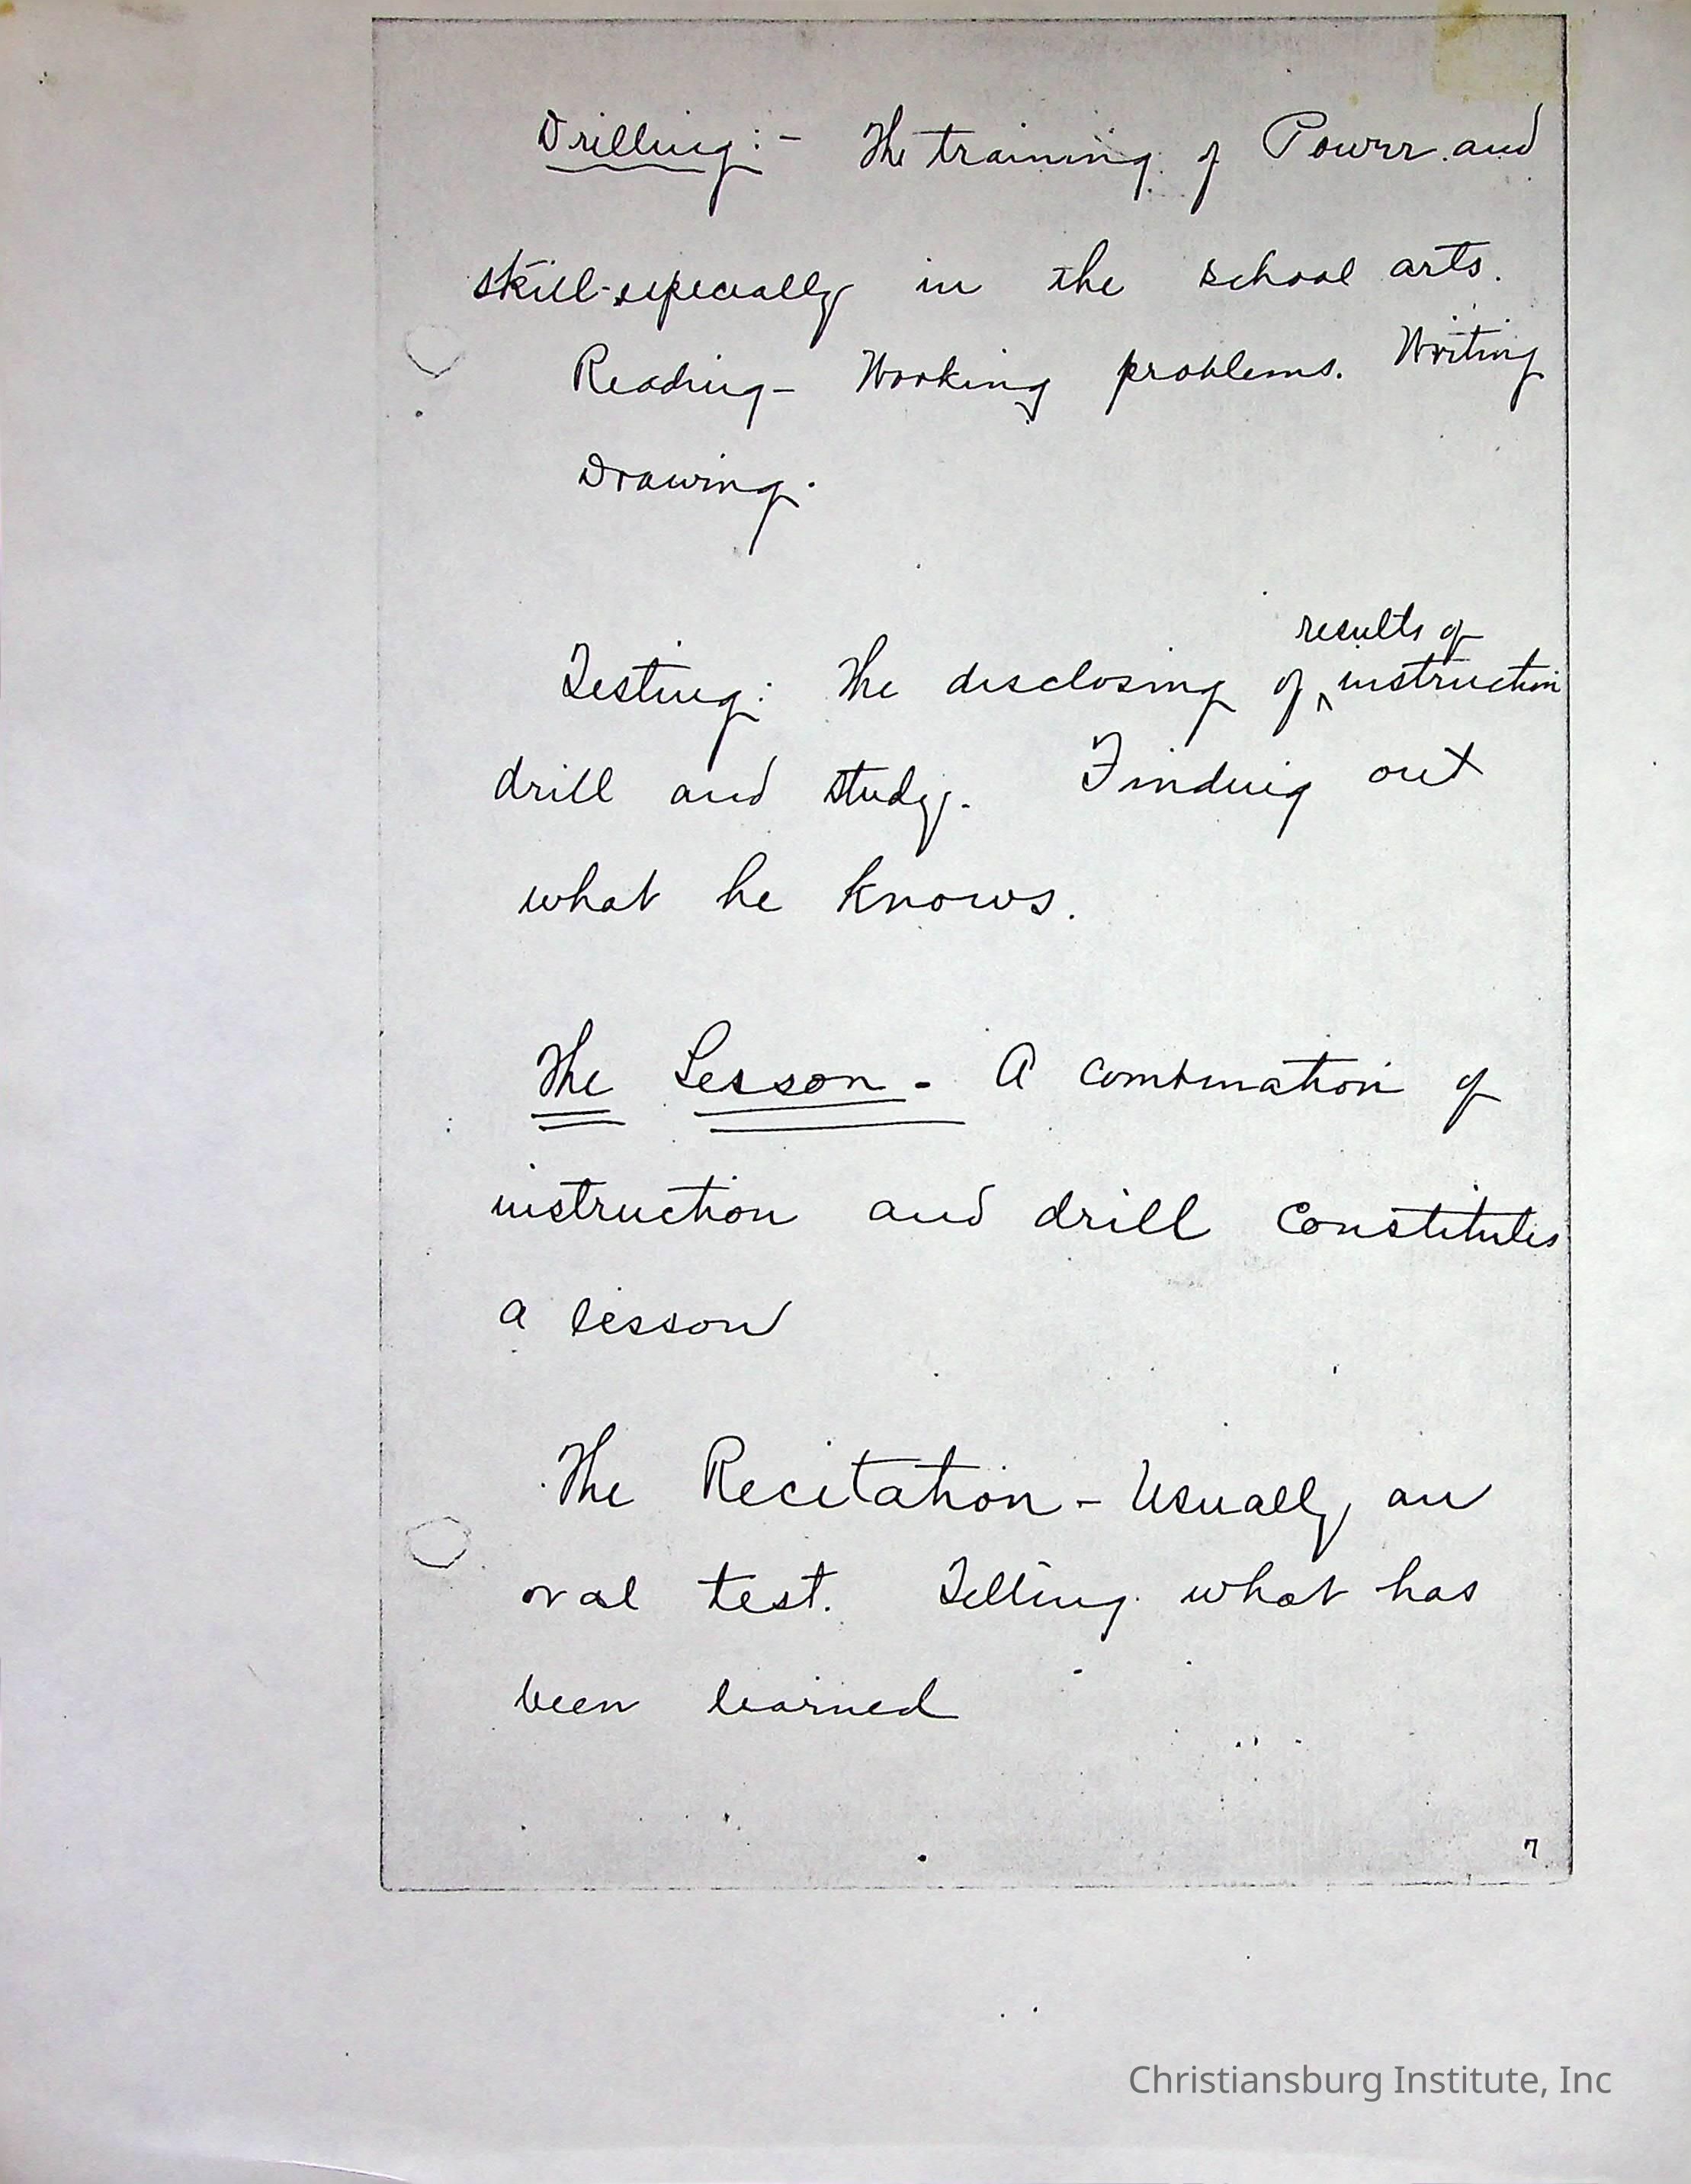 Drilling:- The training of Power and
skill-especially in the school arts.
Reading- Working problems. Writing
Drawing.
results of
Testing: The disclosing of ^ instruction
drill and study. Finding out
what he knows.
The Lesson - A combination of
instruction and drill constitutes
a lesson
The Recitation - Usually an
oral test. Telling what has
been learned
7
Christiansburg Institute, Inc